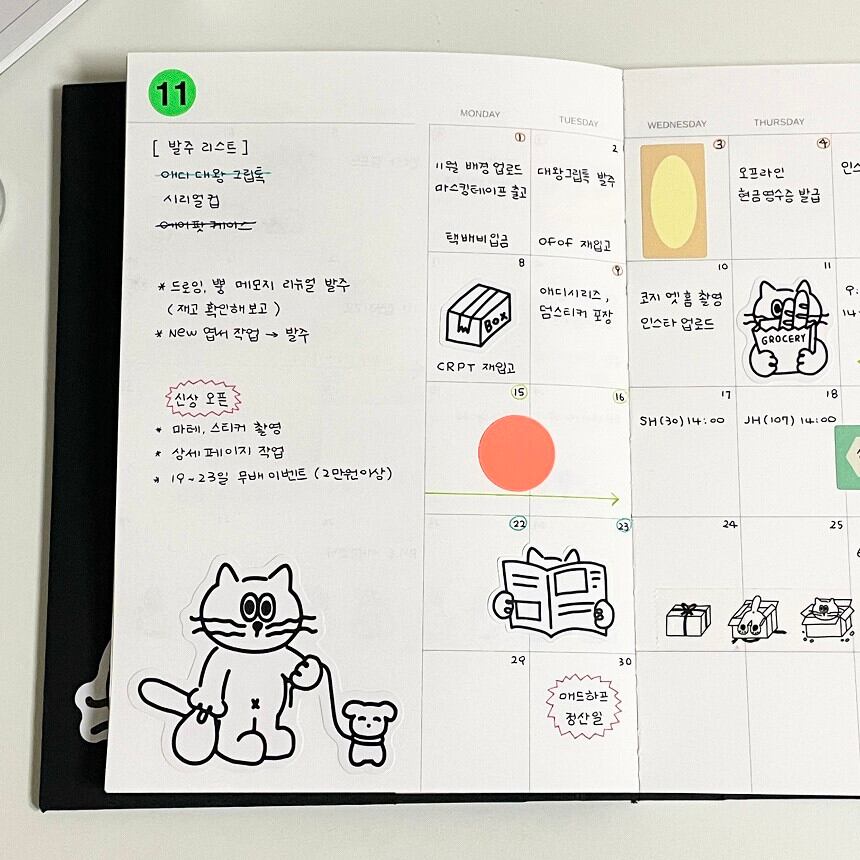 11
[ 발주 리스트 ]
애디 대왕 그립톡
시리얼컵
에어팟 케이스
* 드로잉, 뿅 메모지 리뉴얼 발주
( 재고 확인해보고 )
* New 엽서 작업 → 발주
신상 오픈
* 마테, 스티커 촬영
* 상세페이지 작업
* 19~23일 무배 이벤트 (2만원이상)
MONDAY
TUESDAY
WEDNESDAY
THURSDAY
1
11월 배경 업로드
마스킹테이프 출고
택배비 입금
2
대왕그립톡 발주
OFOF 재입고
3
4
오프라인
현금영수증 발급
8
BOX
CRPT 재입고
9
애디시리즈,
덤스티커 포장
10
코지 엣 홈 촬영
인스타 업로드
11
GROCERY
9.
14
15
16
17
SH(30)14:00
18
JH(107) 14:00
22
23
24
25
29
30
애드하프
정산일